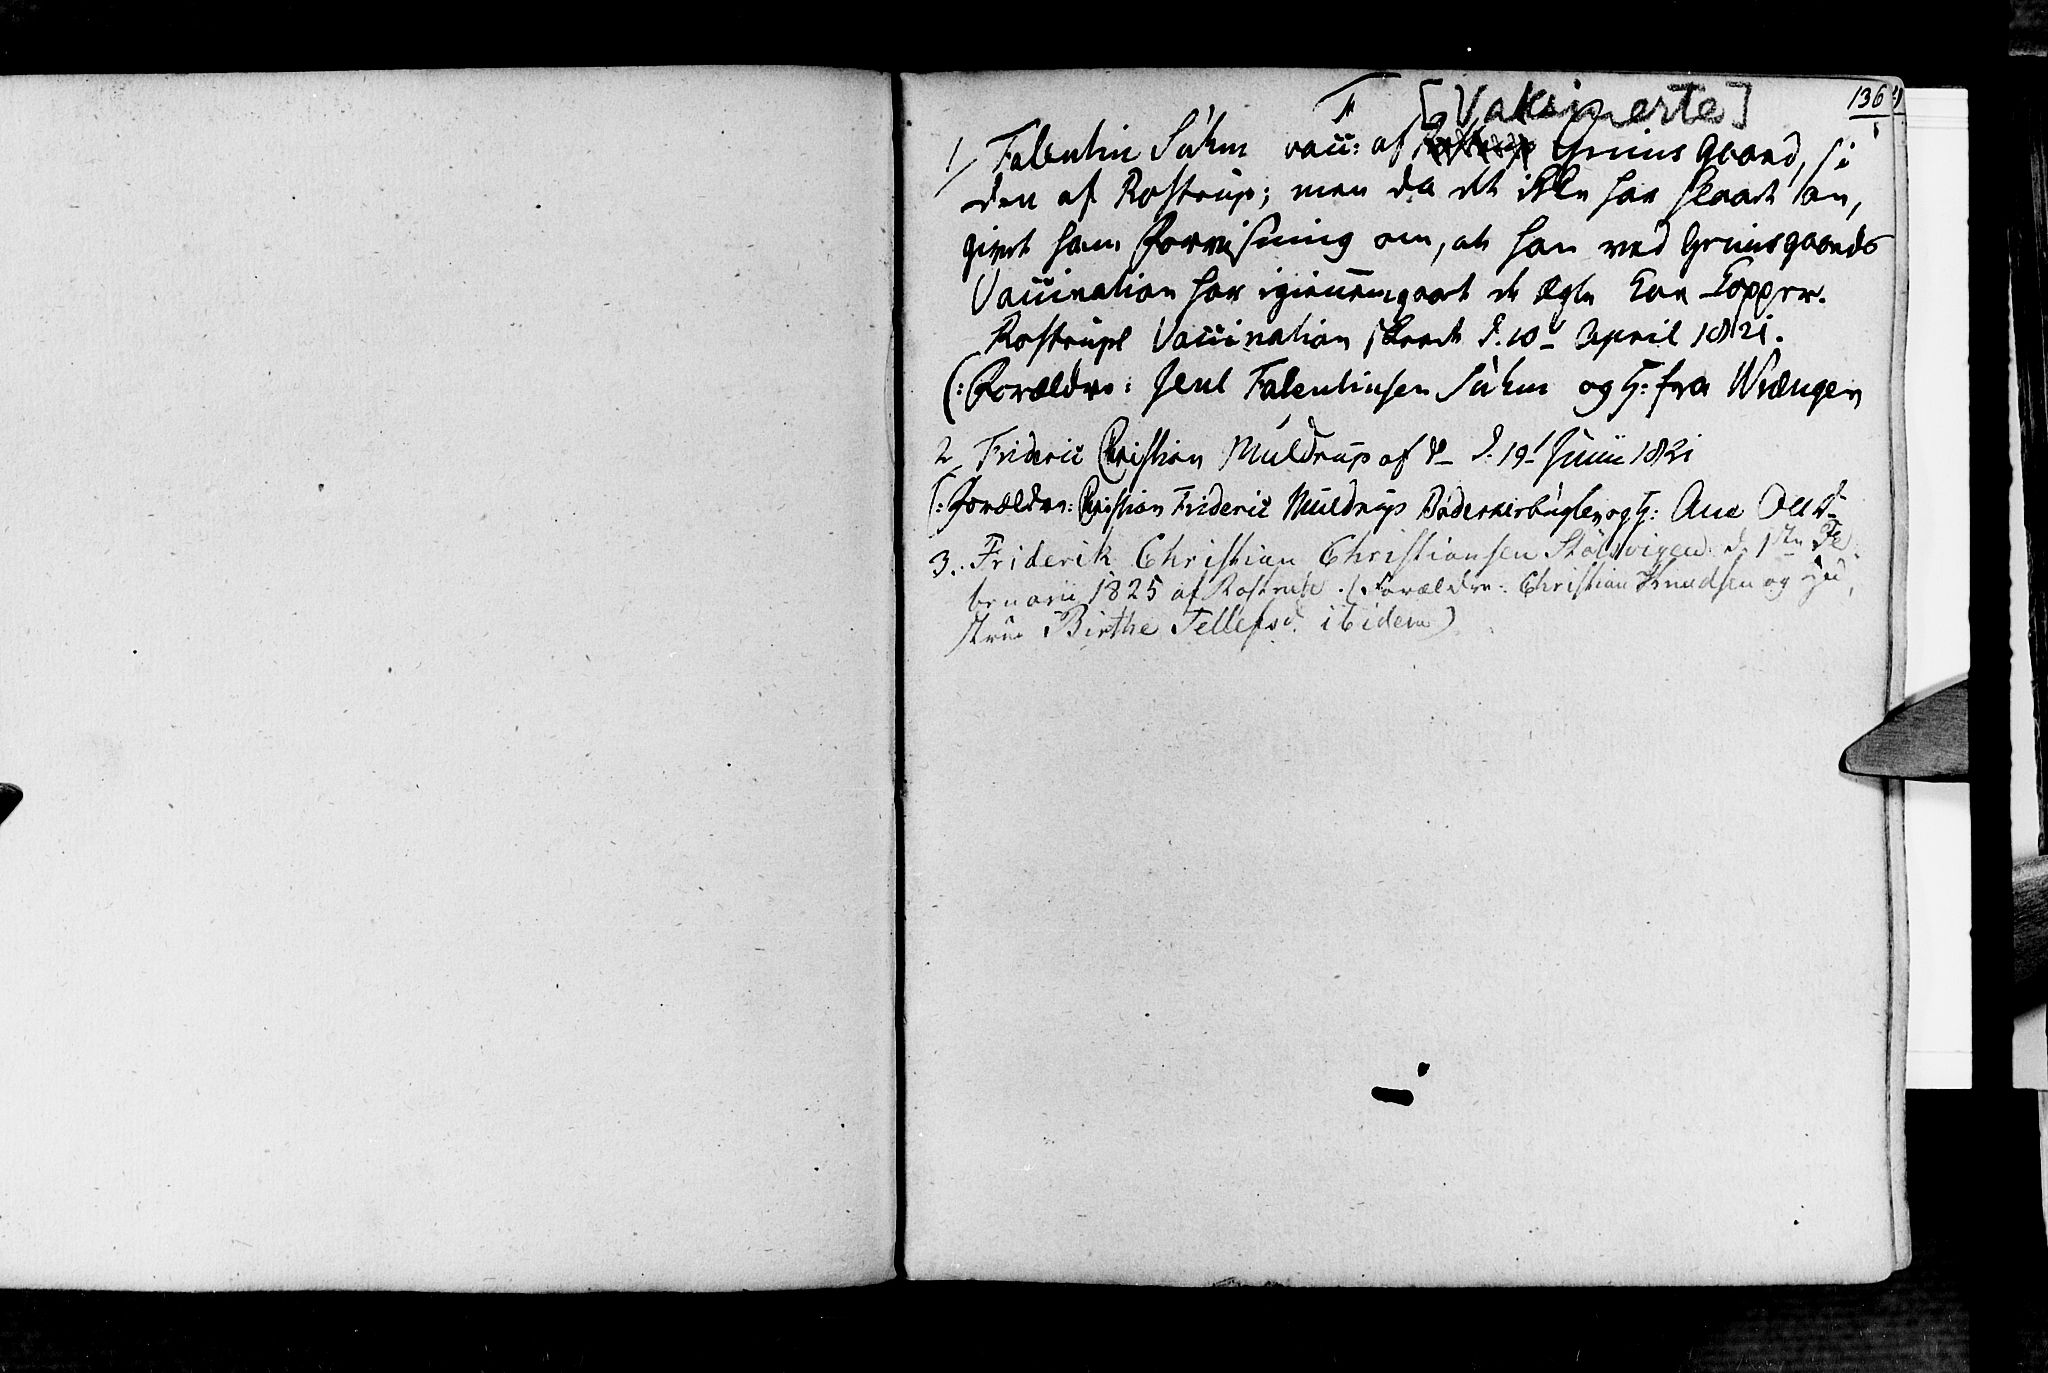 F [Vaksinerte] 136
1/ Falentin Sühm vacc: af Grims Gaard, si
den af Rostrup; men da det ikke har slaaet an,
givet ham Forvisning om, at han ved Grimsgaards
Vaccination har igiennemgaaet de ægte Koe Kopper.
Rostrups Vaccination skeede d. 10d April 1821.
(: Forældre: Jens Falentinsen Sühm og H: fra Wrængen
2/ Frideric Christian Muldrup af d. 19d Junii 1821
(: Forældre: Christian Frideric Muldrup og H: Ane
3. Friderik Christian Christiansen Stølsvigen d. 1ste Fe
bruarii 1825 af Rostrup. (Forældre: Christian Knudsen og Hu,
strue Birthe Tellefsd. ibidem)